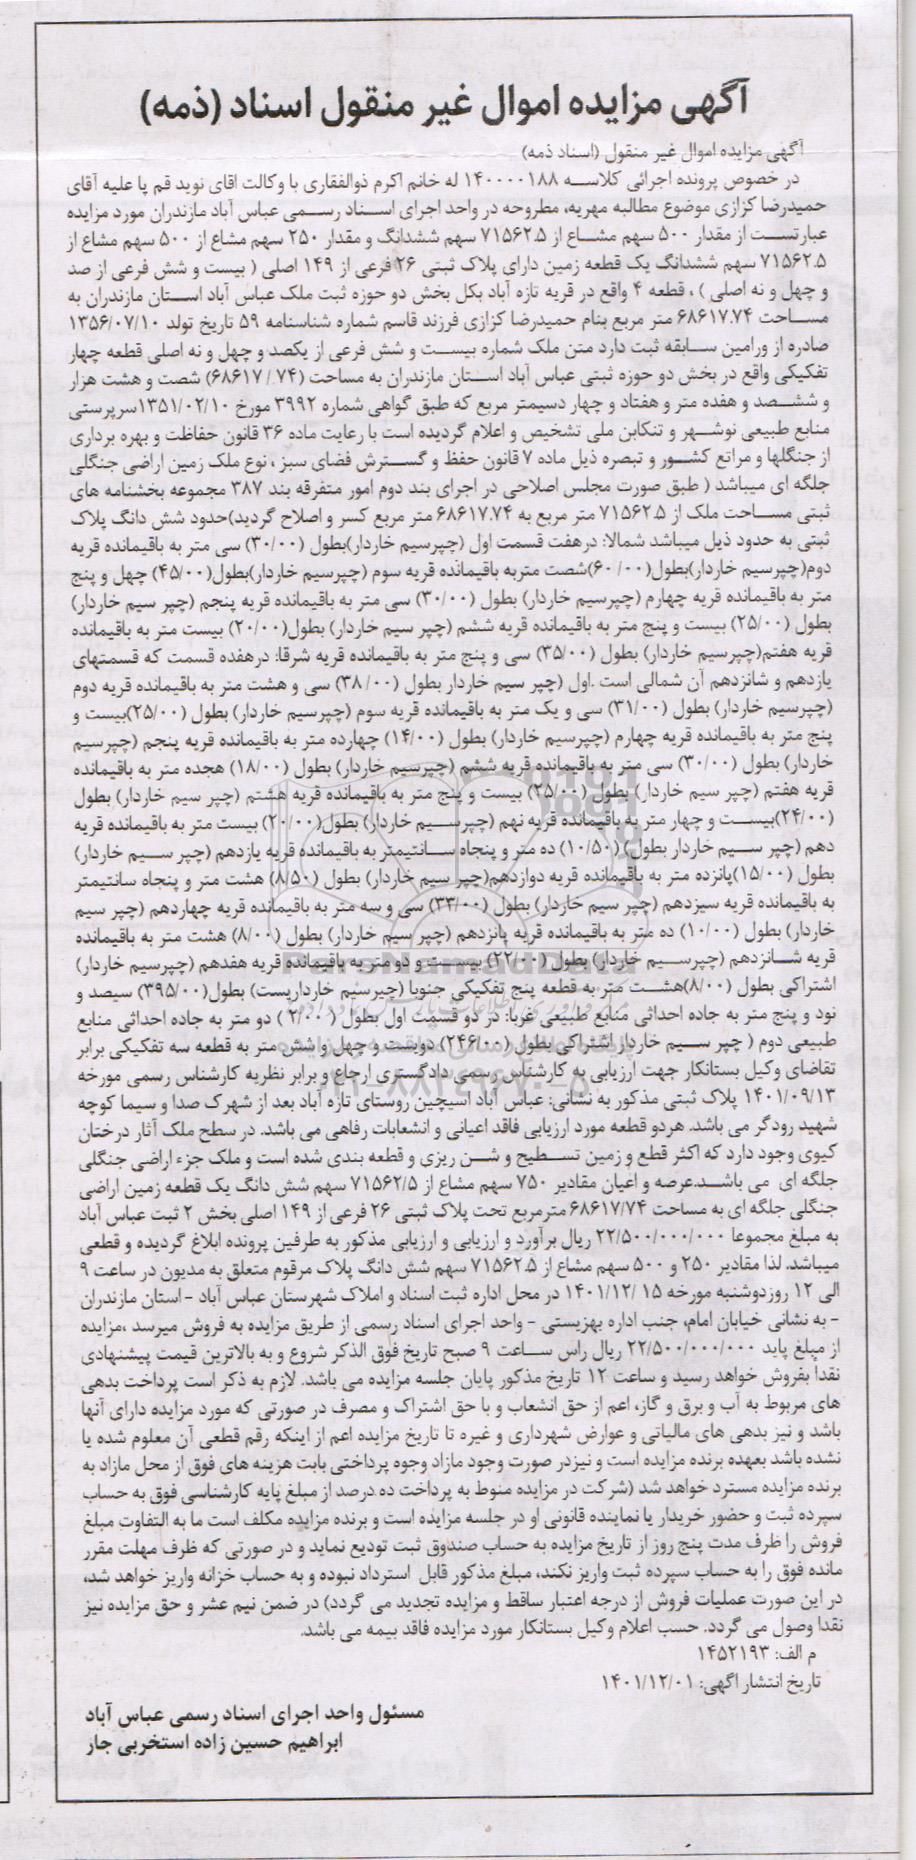 آگهی مزایده اموال غیر منقول اسناد (ذمه)
آگهی مزایده اموال غیر منقول (اسناد ذمه)
در خصوص پرونده اجرائی کلاسه ۱۴۰۰۰۰۱۸۸ له خانم اکرم ذوالفقاری با وکالت اقای نوید قم پا علیه آقای
حمیدرضا کزازی موضوع مطالبه مهریه، مطروحه در واحد اجرای اسناد رسمی عباس آباد مازندران مورد مزایده
عبارتست از مقدار ۵۰۰ سهم مشاع از ۷۱۵۶۲.۵ سهم ششدانگ و مقدار ۲۵۰ سهم مشاع از ۵۰۰ سهم مشاع از
۷۱۵۶۲.۵ سهم ششدانگ یک قطعه زمین دارای پلاک ثبتی ۲۶ فرعی از ۱۴۹ اصلی ( بیست و شش فرعی از صد
و چهل و نه اصلی ) ، قطعه ۴ واقع در قریه تازه آباد بکل بخش دو حوزه ثبت ملک عباس آباد استان مازندران به
مساحت ۶۸۶۱۷.۷۴ متر مربع بنام حمیدرضا کزازی فرزند قاسم شماره شناسنامه ۵۹ تاریخ تولد ۱۳۵۶/۰۷/۱۰
صادره از ورامین سابقه ثبت دارد متن ملک شماره بیست و شش فرعی از یکصد و چهل و نه اصلی قطعه چهار
تفکیکی واقع در بخش دو حوزه ثبتی عباس آباد استان مازندران به مساحت (۶۸۶۱۷ / ۷۴) شصت و هشت هزار
و ششصد و هفده متر و هفتاد و چهار دسیمتر مربع که طبق گواهی شماره ۳۹۹۲ مورخ ۱۳۵۱/۰۲/۱۰سرپرستی
منابع طبیعی نوشهر و تنکابن ملی تشخیص و اعلام گردیده است با رعایت ماده ۳۶ قانون حفاظت و بهره برداری
از جنگلها و مراتع کشور و تبصره ذیل ماده ۷ قانون حفظ و گسترش فضای سبز ، نوع ملک زمین اراضی جنگلی
جلگه ای میباشد ( طبق صورت مجلس اصلاحی در اجرای بند دوم امور متفرقه بند ۳۸۷ مجموعه بخشنامه های
ثبتی مساحت ملک از ۷۱۵۶۲.۵ متر مربع به ۶۸۶۱۷.۷۴ متر مربع کسر و اصلاح گردید)حدود شش دانگ پلاک
ثبتی به حدود ذیل میباشد شمالا: درهفت قسمت اول (چپرسیم خاردار)بطول (۳۰/۰۰) سی متر به باقیمانده قریه
دوم(چپرسیم خاردار)بطول(۶۰/۰۰)شصت متربه باقیمانده قریه سوم (چپرسیم خاردار)بطول(۴۵/۰۰) چهل و پنج
متر به باقیمانده قریه چهارم (چپرسیم خاردار) بطول (۳۰/۰۰) سی متر به باقیمانده قریه پنجم (چپر سیم خاردار)
بطول (۲۵/۰۰) بیست و پنج متر به باقیمانده قریه ششم (چپر سیم خاردار) بطول(۲۰/۰۰) بیست متر به باقیمانده
قریه هفتم(چپرسیم خاردار) بطول (۳۵/۰۰) سی و پنج متر به باقیمانده قریه شرقا: درهفده قسمت که قسمتهای
یازدهم و شانزدهم آن شمالی است .اول (چپر سیم خاردار بطول (۳۸/۰۰) سی و هشت متر به باقیمانده قریه دوم
(چپرسیم خاردار) بطول (۳۱/۰۰) سی و یک متر به باقیمانده قریه سوم (چپرسیم خاردار) بطول (۲۵/۰۰)بیست و
پنج متر به باقیمانده قریه چهارم (چپرسیم خاردار) بطول (۱۴/۰۰) چهارده متر به باقیمانده قریه پنجم (چپرسیم
خاردار) بطول (۳۰/۰۰) سی متر به باقیمانده قریه ششم (چپرسیم خاردار) بطول (۱۸/۰۰) هجده متر به باقیمانده
قریه هفتم (چپر سیم خاردار) بطول (۲۵/۰۰) بیست و پنج متر به باقیمانده قریه هشتم (چپر سیم خاردار) بطول
(۲۴/۰۰)بیست و چهار متر به باقیمانده قریه نهم (چپرسیم خاردار) بطول(۲۰/۰۰) بیست متر به باقیمانده قریه
دهم (چپر سیم خاردار بطول) (۱۰/۵۰) ده متر و پنجاه سانتیمتر به باقیمانده قریه یازدهم (چپر سیم خاردار)
بطول (۱۵/۰۰)پانزده متر به باقیمانده قریه دوازدهم(چپر سیم خاردار) بطول (۸/۵۰) هشت متر و پنجاه سانتیمتر
به باقیمانده قریه سیزدهم (چپر سیم خاردار) بطول (۳۳/۰۰) سی و سه متر به باقیمانده قریه چهاردهم (چپر سیم
خاردار) بطول (۱۰/۰۰) ده متر به باقیمانده قریه پانزدهم (چپر سیم خاردار) بطول (۸/۰۰) هشت متر به باقیمانده
قریه شانزدهم (چپرسیم خاردار) بطول (۲۲/۰۰) بیست و دو متر به باقیمانده قریه هفدهم (چپرسیم خاردار)
اشتراکی بطول (۸/۰۰)هشت متر به قطعه پنج تفکیکی جنوبا (چپرسیم خارداریست) بطول(۳۹۵/۰۰) سیصد و
نود و پنج متر به جاده احداثی منابع طبیعی غربا: در دو قسمت اول بطول ( ۲/۰۰ ) دو متر به جاده احداثی منابع
طبیعی دوم ( چپر سیم خاردار اشتراکی بطول (۲۴۶/۰۰) دویست و چهل و شش متر به قطعه سه تفکیکی برابر
تقاضای وکیل بستانکار جهت ارزیابی به کارشناس رسمی دادگستری ارجاع و برابر نظریه کارشناس رسمی مورخه
۱۴۰۱/۰۹/۱۳ پلاک ثبتی مذکور به نشانی: عباس آباد اسپچین روستای تازه آباد بعد از شهرک صدا و سیما کوچه
شهید رودگر می باشد. هردو قطعه مورد ارزیابی فاقد اعیانی و انشعابات رفاهی می باشد. در سطح ملک آثار درختان
کیوی وجود دارد که اکثر قطع و زمین تسطیح و شن ریزی و قطعه بندی شده است و ملک جزء اراضی جنگلی
جلگه ای می باشد.عرصه و اعیان مقادیر ۷۵۰ سهم مشاع از ۷۱۵۶۲/۵ سهم شش دانگ یک قطعه زمین اراضی
جنگلی جلگه ای به مساحت ۶۸۶۱۷/۷۴ مترمربع تحت پلاک ثبتی ۲۶ فرعی از ۱۴۹ اصلی بخش ۲ ثبت عباس آباد
به مبلغ مجموعا ۲۲/۵۰۰/۰۰۰/۰۰۰ ریال برآورد و ارزیابی و ارزیابی مذکور به طرفین پرونده ابلاغ گردیده و قطعی
میباشد. لذا مقادیر ۲۵۰ و ۵۰۰ سهم مشاع از ۷۱۵۶۲.۵ سهم شش دانگ پلاک مرقوم متعلق به مدیون در ساعت ۹
الی ۱۲ روزدوشنبه مورخه ۱۴۰۱/۱۲/۱۵ در محل اداره ثبت اسناد و املاک شهرستان عباس آباد - استان مازندران
- به نشانی خیابان امام، جنب اداره بهزیستی - واحد اجرای اسناد رسمی از طریق مزایده به فروش میرسد ،مزایده
از مبلغ پایه ۲۲/۵۰۰/۰۰۰/۰۰۰ ریال راس ساعت ۹ صبح تاریخ فوق الذکر شروع و به بالاترین قیمت پیشنهادی
نقدا بفروش خواهد رسید و ساعت ۱۲ تاریخ مذکور پایان جلسه مزایده می باشد. لازم به ذکر است پرداخت بدهی
های مربوط به آب و برق و گاز، اعم از حق انشعاب و یا حق اشتراک و مصرف در صورتی که مورد مزایده دارای آنها
باشد و نیز بدهی های مالیاتی و عوارض شهرداری و غیره تا تاریخ مزایده اعم از اینکه رقم قطعی آن معلوم شده یا
نشده باشد بعهده برنده مزایده است و نیزدر صورت وجود مازاد وجوه پرداختی بابت هزینه های فوق از محل مازاد به
برنده مزایده مسترد خواهد شد (شرکت در مزایده منوط به پرداخت ده درصد از مبلغ پایه کارشناسی فوق به حساب
سپرده ثبت و حضور خریدار یا نماینده قانونی او در جلسه مزایده است و برنده مزایده مکلف است ما به التفاوت مبلغ
فروش را ظرف مدت پنج روز از تاریخ مزایده به حساب صندوق ثبت تودیع نماید و در صورتی که ظرف مهلت مقرر
مانده فوق را به حساب سپرده ثبت واریز نکند، مبلغ مذکور قابل استرداد نبوده و به حساب خزانه واریز خواهد شد،
در این صورت عملیات فروش از درجه اعتبار ساقط و مزایده تجدید می گردد) در ضمن نیم عشر و حق مزایده نیز
نقدا وصول می گردد. حسب اعلام وکیل بستانکار مورد مزایده فاقد بیمه می باشد.
م الف: ۱۴۵۲۱۹۳
تاریخ انتشار اگهی: ۱۴۰۱/۱۲/۰۱
مسئول واحد اجرای اسناد رسمی عباس آباد
ابراهیم حسین زاده استخربی جار
ParsNamadData